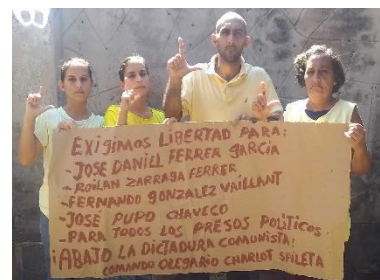 EXIGIMOS LIBERTAD PARA:
- JOSE DANIEL FERRER GARCÍA
- ROILAN ZARRAGA FERRER
- FERNANDO GONZALEZ VAILLANT
- JOSÉ PUPO CHAVECO
- PARA TODOS LOS PRESOS POLÍTICOS
¡ABAJO LA DICTADURA COMUNISTA!
COMANDO OLEGARIO CHARLOT SPILETA